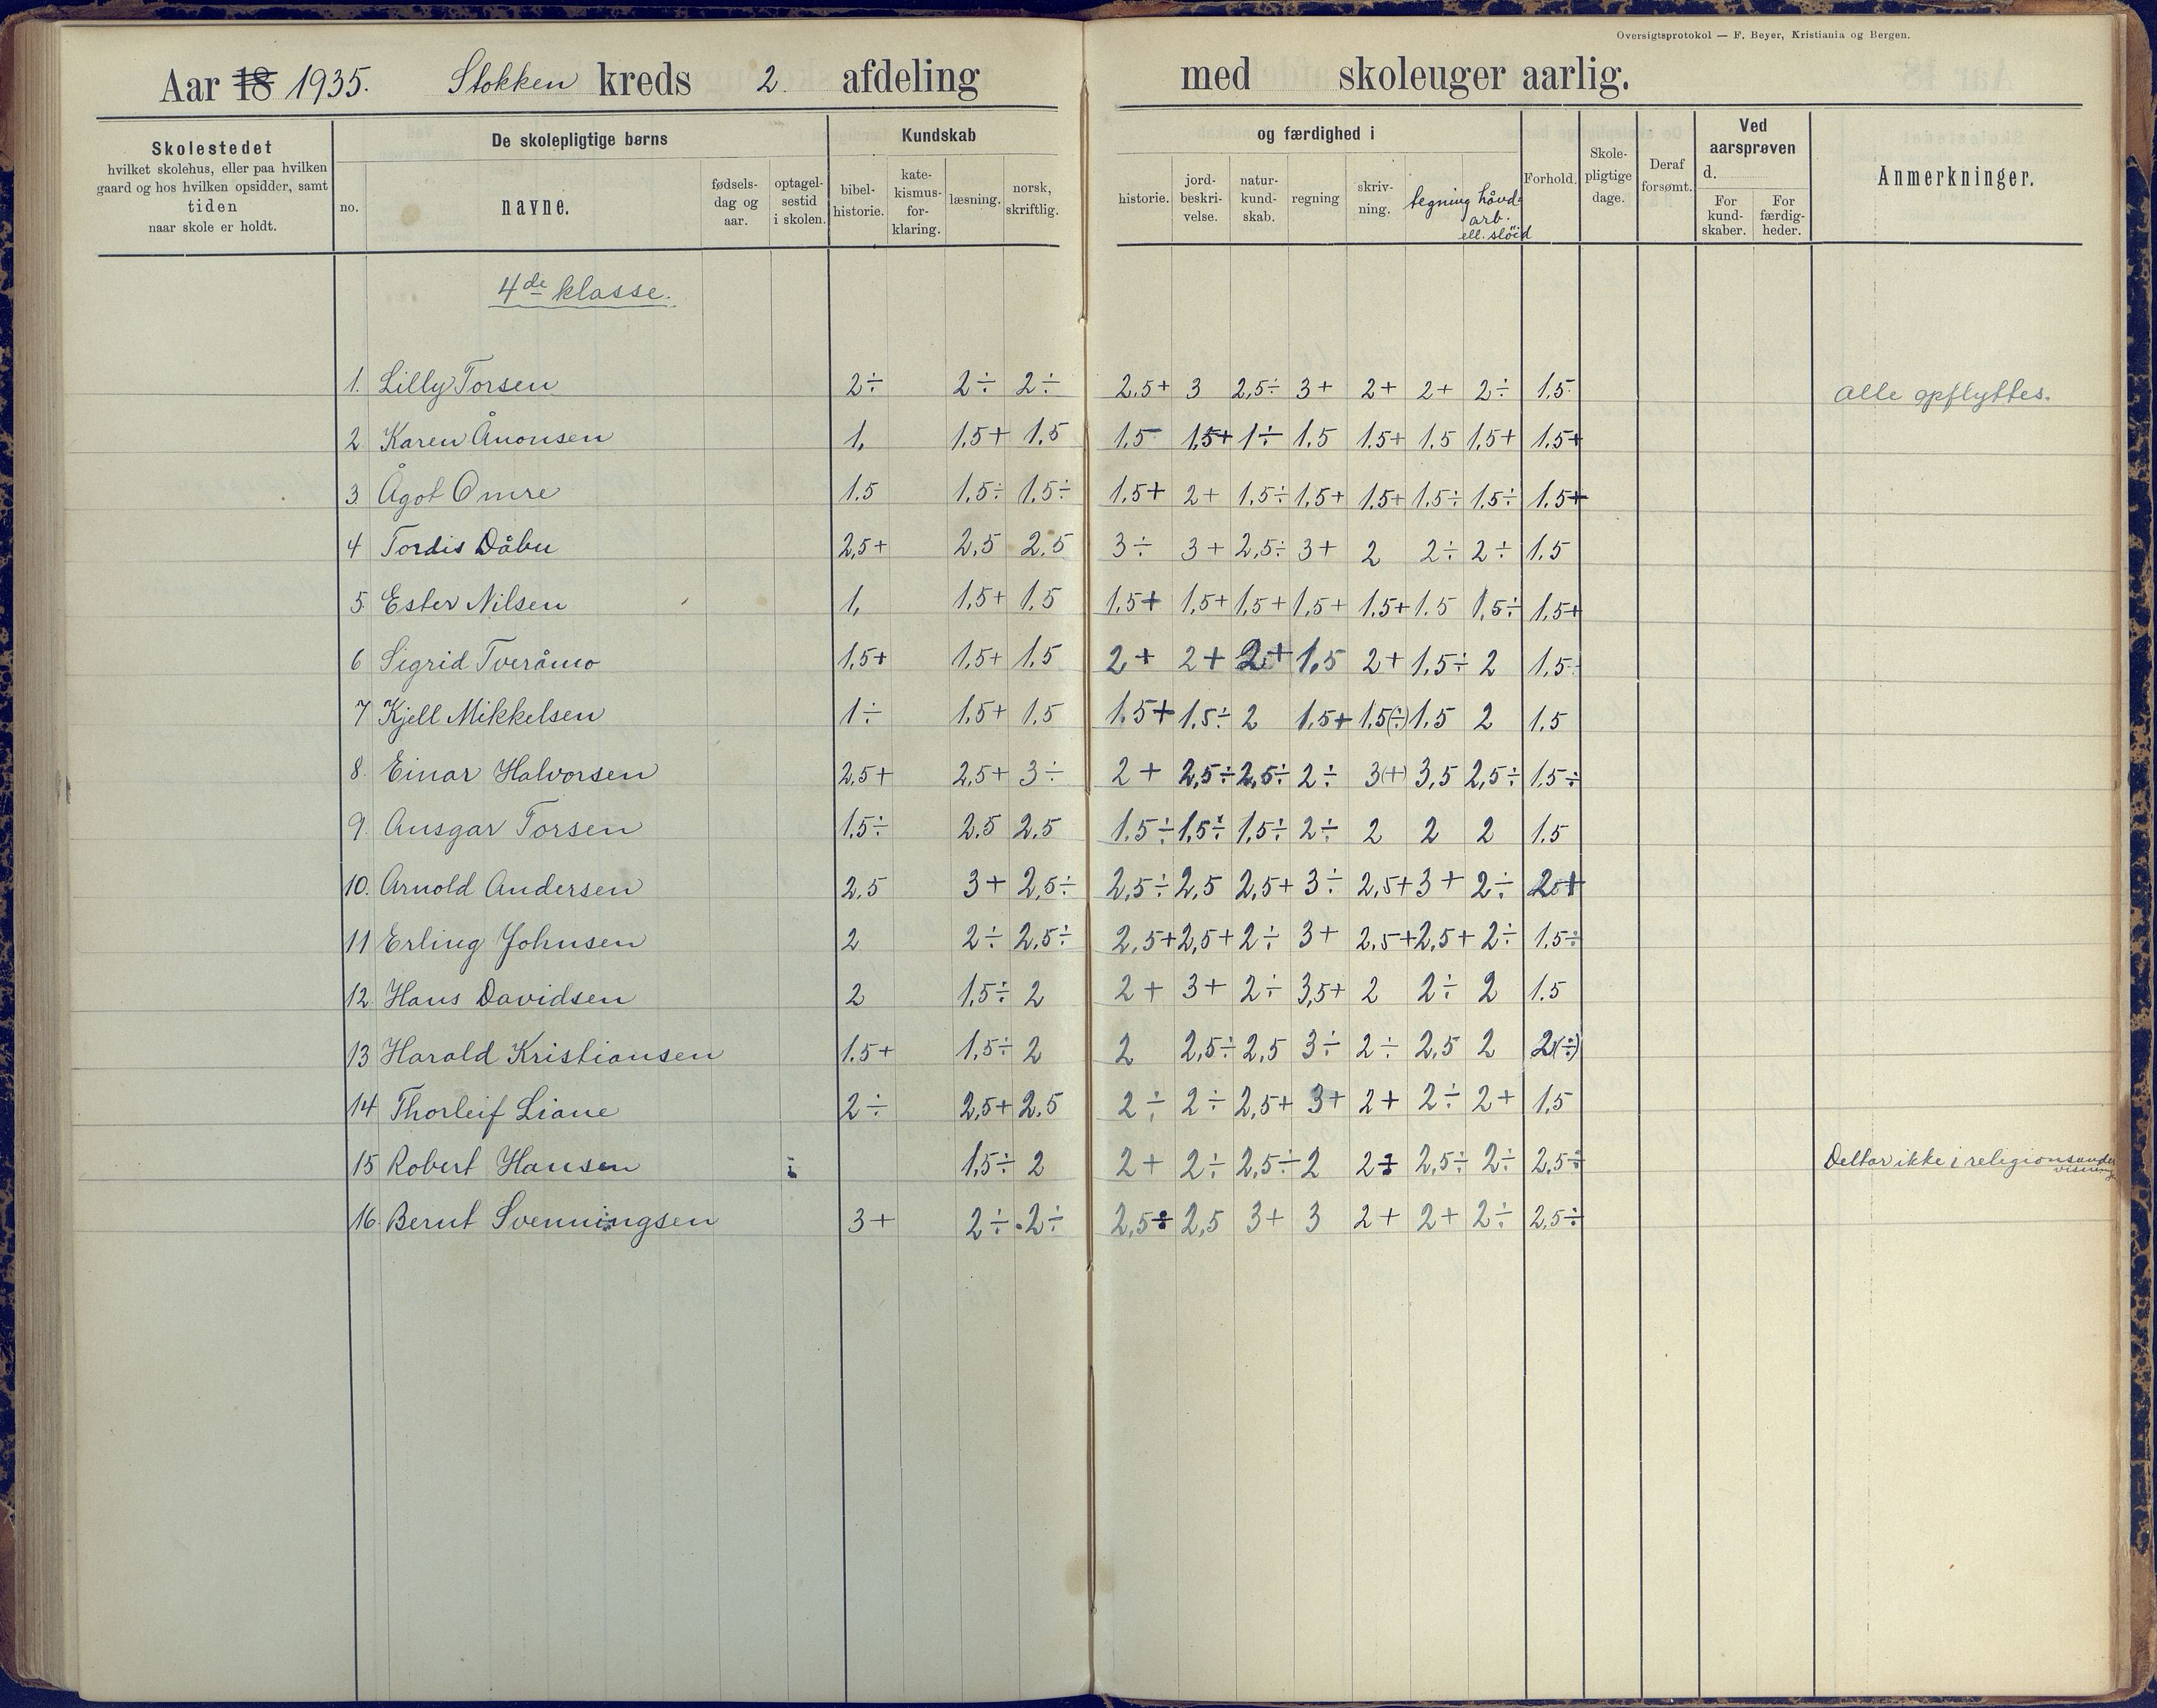 Oversigtsprotokol — F. Beyer, Kristiania og Bergen.
Aar 18 1935. Stokken kreds 2. afdeling med skoleuger aarlig.
Skolestedet
hvilket skolehus, eller paa hvilken
gaard og hos hvilken opsidder, samt
tiden
naar skole er holdt.
De skolepligtige børns
no.
navne.
fødsels-
dag og
aar.
optagel-
sestid
i skolen.
Kundskab
bibel-
historie.
kate-
kismus-
for-
klaring.
læsning.
norsk,
skriftlig.
og færdighed i
historie.
jord-
beskri-
velse.
natur-
kund-
skab.
regning
skriv-
ning.
tegning
hånd-
arb.
ell. slöid
Forhold.
Skole-
pligtige
dage.
Deraf
forsømt.
Ved
aarsprøven
d.
For
kund-
skaber.
For
færdig-
heder.
Anmerkninger.
4de klasse.
1. Lilly Torsen 2÷ 2÷ 2÷ 2.5+ 3 2,5÷ 3+ 2+ 2+ 2÷ 1.5 Alle opflyttes.
2 Karen Ånonsen 1, 1,5+ 1,5 1,5 1,5+ 1÷ 1,5 1.5+ 1,5 1,5+ 1.5+
3. Ågot Omre 1.5 1,5÷ 1,5÷ 1,5+ 2+ 1,5÷ 1,5+ 1.5+ 1,5÷ 1,5÷ 1.5+
4 Tordis Dåbu 2,5+ 2,5 2.5 3÷ 3+ 2,5÷ 3+ 2 2÷ 2÷ 1.5
5. Ester Nilsen 1, 1,5+ 1,5 1,5+ 1,5+ 1,5+ 1,5+ 1.5+ 1.5 1,5÷ 1,5+
6 Sigrid Tveråmo 1,5+ 1,5+ 1,5 2+ 2+ 2+ 1,5 2+ 1,5÷ 2 1,5
7 Kjell Mikkelsen 1÷ 1,5+ 1,5 1,5+ 1,5÷ 2 1,5+ 1,5(÷) 1,5 2 1,5
8. Einar Halvorsen 2,5+ 2,5+ 3÷ 2+ 2,5÷ 2,5÷ 2÷ 3(+) 3,5 2,5÷ 1,5÷
9. Ansgar Torsen 1,5÷ 2.5 2.5 1.5÷ 1,5÷ 1,5÷ 2÷ 2 2 2 1.5
10. Arnold Andersen 2,5 3+ 2,5÷ 2,5÷ 2,5 2,5+ 3÷ 2,5+ 3+ 2÷ 2+
11 Erling Johnsen 2 2÷ 2,5÷ 2,5+ 2,5+ 2÷ 3+ 2,5+ 2,5+ 2÷ 1,5÷
12. Hans Davidsen 2 1,5÷ 2 2+ 3+ 2÷ 3,5+ 2 2÷ 2 1.5
13 Harald Kristiansen 1.5+ 1,5÷ 2 2 2,5÷ 2,5 3÷ 2÷ 2,5 2 2(÷)
14 Thorleif Liane 2÷ 2,5+ 2.5 2÷ 2÷ 2,5+ 3+ 2+ 2÷ 2+ 1,5
15 Robert Hansen 1,5÷ 2 2+ 2÷ 2,5÷ 2 2÷ 2,5÷ 2÷ 2,5÷ Deltar ikke i religionsunder
visning
16. Bernt Svenningsen 3+ 2÷ 2÷ 2,5÷ 2,5 3+ 3 2+ 2+ 2÷ 2,5÷